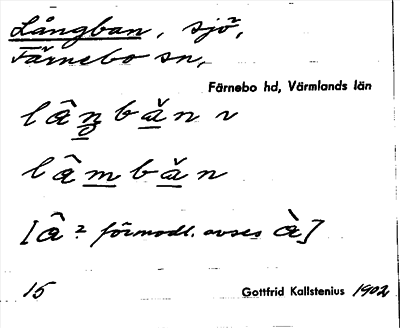 Långban, sjö²,
Färnebo sn,
Färnebo hd, Värmlands län
lâŋbăn v
lâmbăn
[â? förmodl. avses à]
15 Gottfrid Kallstenius 1902